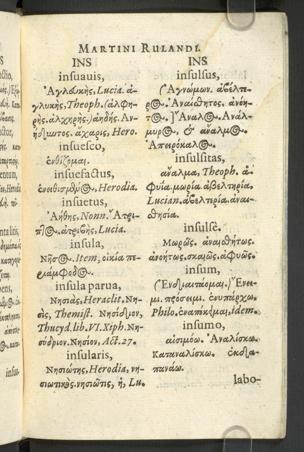 MARTINI RULANDI.
INS
insuauis,
Ἀγλυκής, Lucia. ἀ-
γλυκής, Theoph.
ἀηδής. Ἀν-
ήδυντος. ἄχαρις, Hero.
insuesco,
ἐνεθίζομαι.
insuefactus,
ἐνειθισμένος, Herodia.
insuetus,
Ἀήθης, Nonn. Ἀτρι-
πτος. ἀτριβής, Lucia.
insula,
Νῆσος. Item, οἰκία πε-
insula parua,
Νησιάς, Heraclit. Νη-
σίς, Themist. Νησίδιον,
Thucyd. lib. VI. Xiph. Νη-
σύδριον. Νησίον, Act. 27.
insularis,
Νησιώτης, Herodia, νη-
σιωτικός. νησιῶτις, ἡ, Lu.
INS.
insulsus,
Ἀγνώμων. ἀβέλτε-
ρος. Ἀναίσθητος. ἀνόη-
τος. Ἄναλος. Ἀνάλ-
μυρος, & ἄναλμος.
Ἀπειρόκαλος.
insulsitas,
ἀναλμία, Theoph. ἀ-
φυΐα. μωρία. ἀβελτηρία.
Lucian. ἀβελτερία. ἀναι-
σθησία.
insulsè.
Μωρῶς. ἀναισθήτως.
ἀνοήτως. σκαιῶς. ἀφυῶς.
insum,
Ἔνει-
μι. πρόσειμι. ἐνυπάρχω.
Philo. ἐναπόκειμαι, idem.
insumo,
Ἀναλίσκω.
Καταναλίσκω. ἐκδα-
πανάω.
labo-